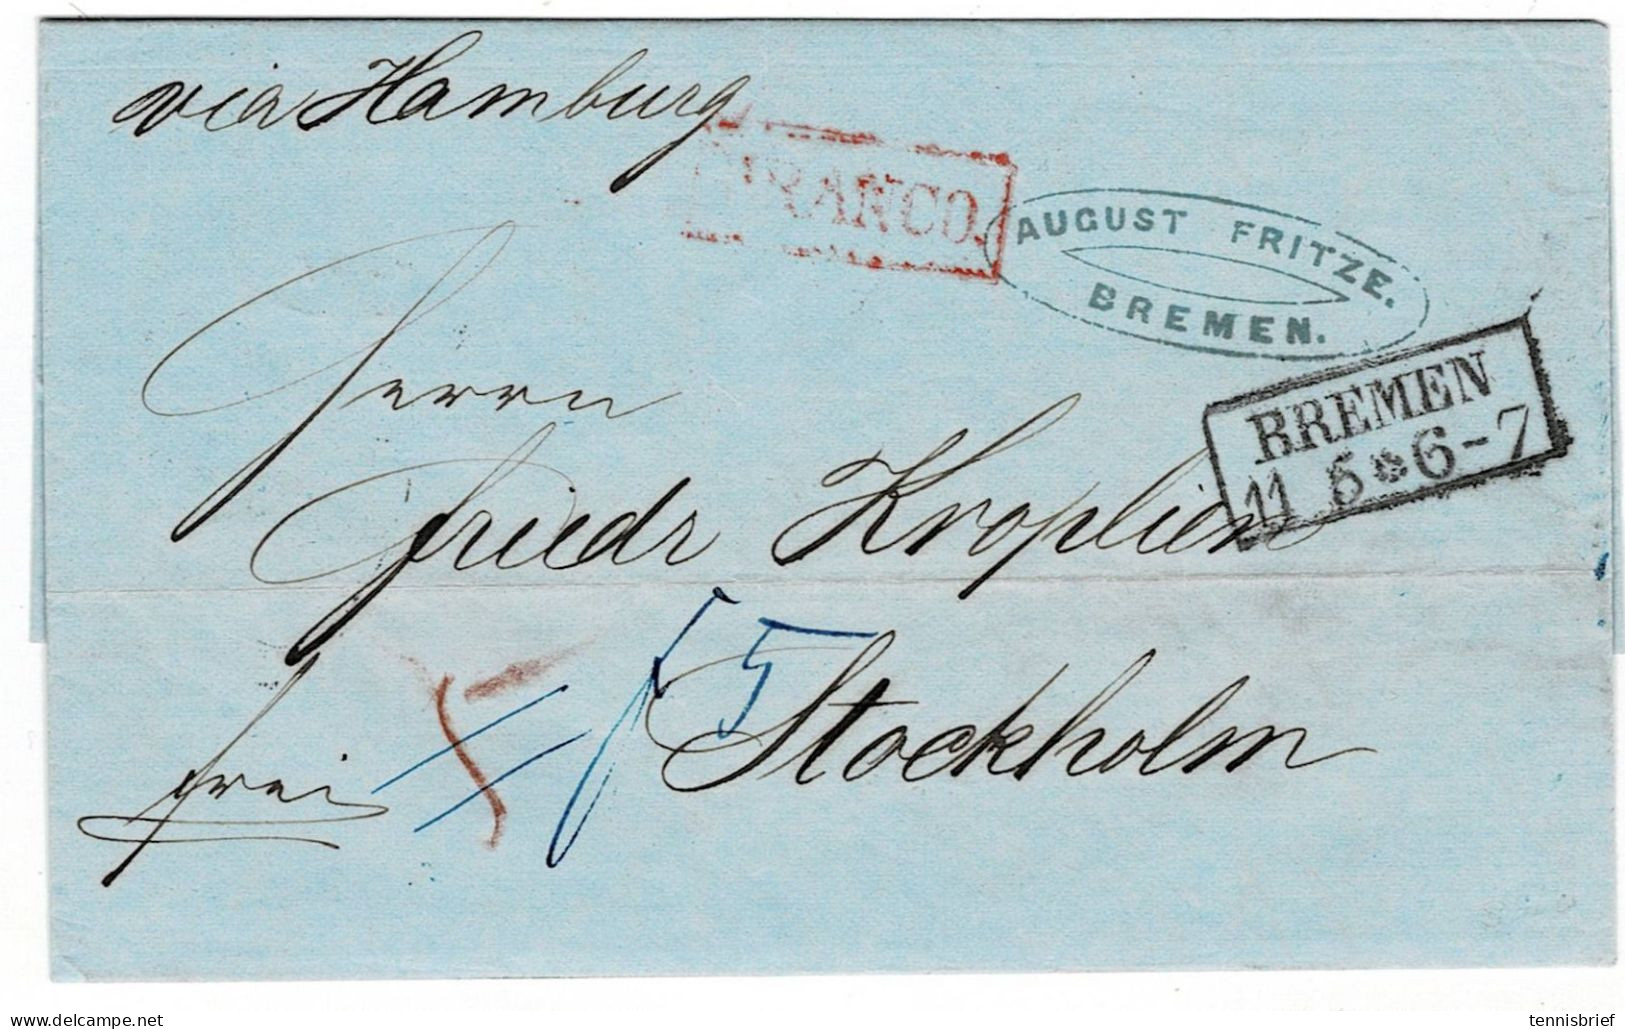 via Hamburg
FRANCO.
AUGUST FRITZE.
BREMEN.
BREMEN
11 5 * 6-7
Herrn
Friedr Kroplien
Stockholm
frei
f 5
www.delcampe.net
tennisbrief